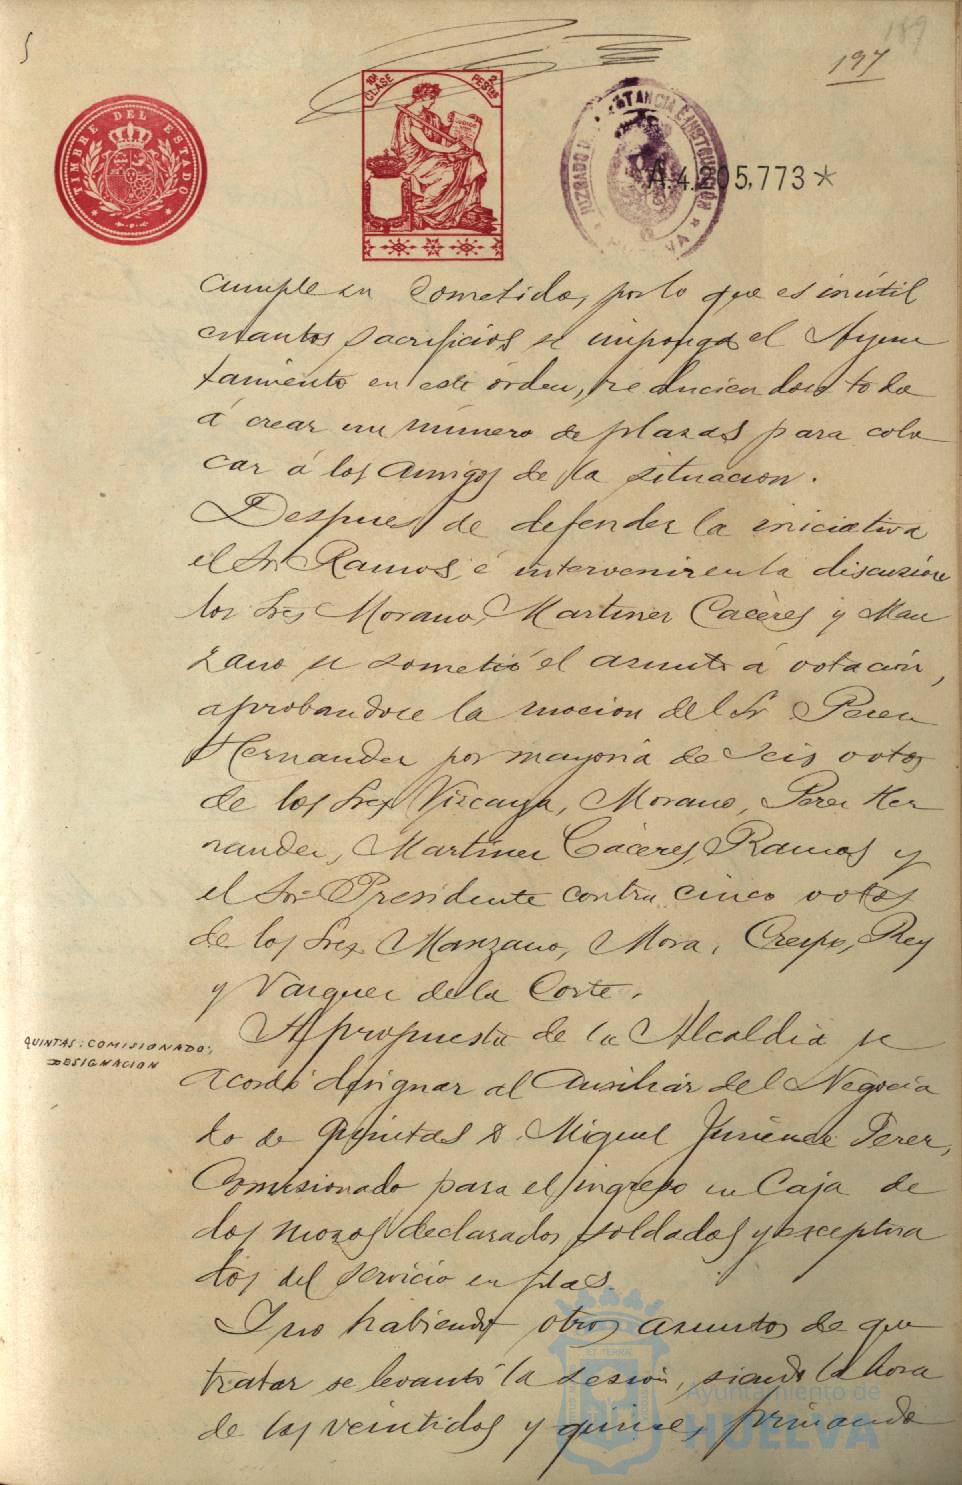 189
197
TIMBRE DEL ESTADO
10ª CLASE
2 PESTAS
JUZGADO INSTANCIA E INSTRUCCIÓN
HUELVA
A.4. 05,773*
cumple su cometido, por lo que es inútil
cuantos sacrificios se imponga el Ayun
tamiento en este órden, reduciendose todo
á crear un número de plazas para colo
car á los amigos de la situacion.
Despues de defender la iniciativa
el Sr. Ramos, é intervenir en la discusión
los Sres Morano, Martinez Cacères y Man
zano se sometió el asunto á votación,
aprobandose la mocion del Sr Perez
Hernandez por mayoria de seis votos
de los Sres Vizcaya, Morano, Perez Her
nandez, Martinez Cáceres, Ramos y
el Sor Presidente contra cinco votos
de los Sres Manzano, Mora, Crespo, Rey
y Vazquez de la Corte.
QUINTAS: COMISIONADO:
DESIGNACION
A propuesta de la Alcaldia se
acordó designar al Auxiliar del Negocia
do de Quintas D. Miguel Jimenez Perez,
Comisionado para el ingreso en Caja de
los mozos declarados soldados y exceptua
dos del servicio en filas.
Y no habiendo otros asuntos de que
tratar se levantó la sesión, siendo la hora
de las veintidos y quince, firmando
Ayuntamiento de
HUELVA